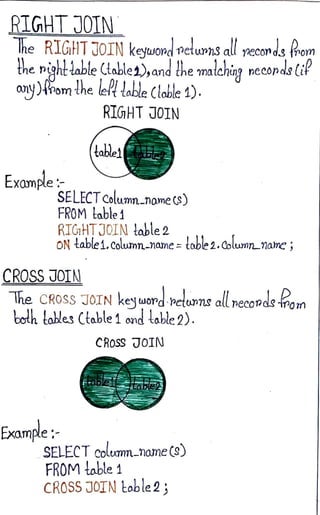 RIGHT JOIN
The RIGHT JOIN keyword returns all records from
the right table (table2), and the matching records (if
any) from the left table (table 1).
RIGHT JOIN
table1 table2
Example :-
SELECT column_name(s)
FROM table1
RIGHT JOIN table 2
ON table1.column_name = table2.column_name ;
CROSS JOIN
The CROSS JOIN keyword returns all records from
both tables (table 1 and table 2).
CROSS JOIN
table1 table2
Example :-
SELECT column_name(s)
FROM table 1
CROSS JOIN table2 ;